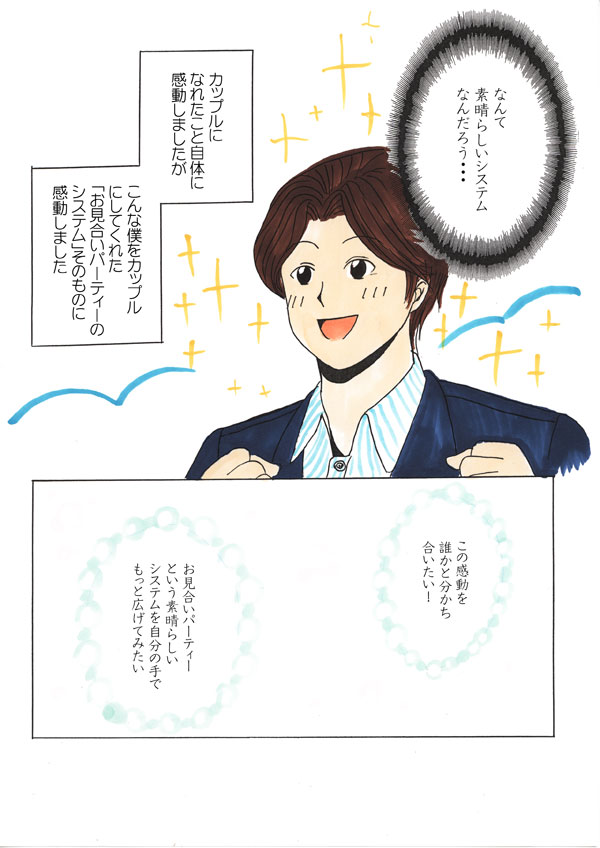 なんて
素晴らしいシステム
なんだろう・・・
カップルに
なれたこと自体に
感動しましたが
こんな僕をカップル
にしてくれた
「お見合いパーティーの
システム」そのものに
感動しました
この感動を
誰かと分かち
合いたい！
お見合いパーティー
という素晴らしい
システムを自分の手で
もっと広げてみたい